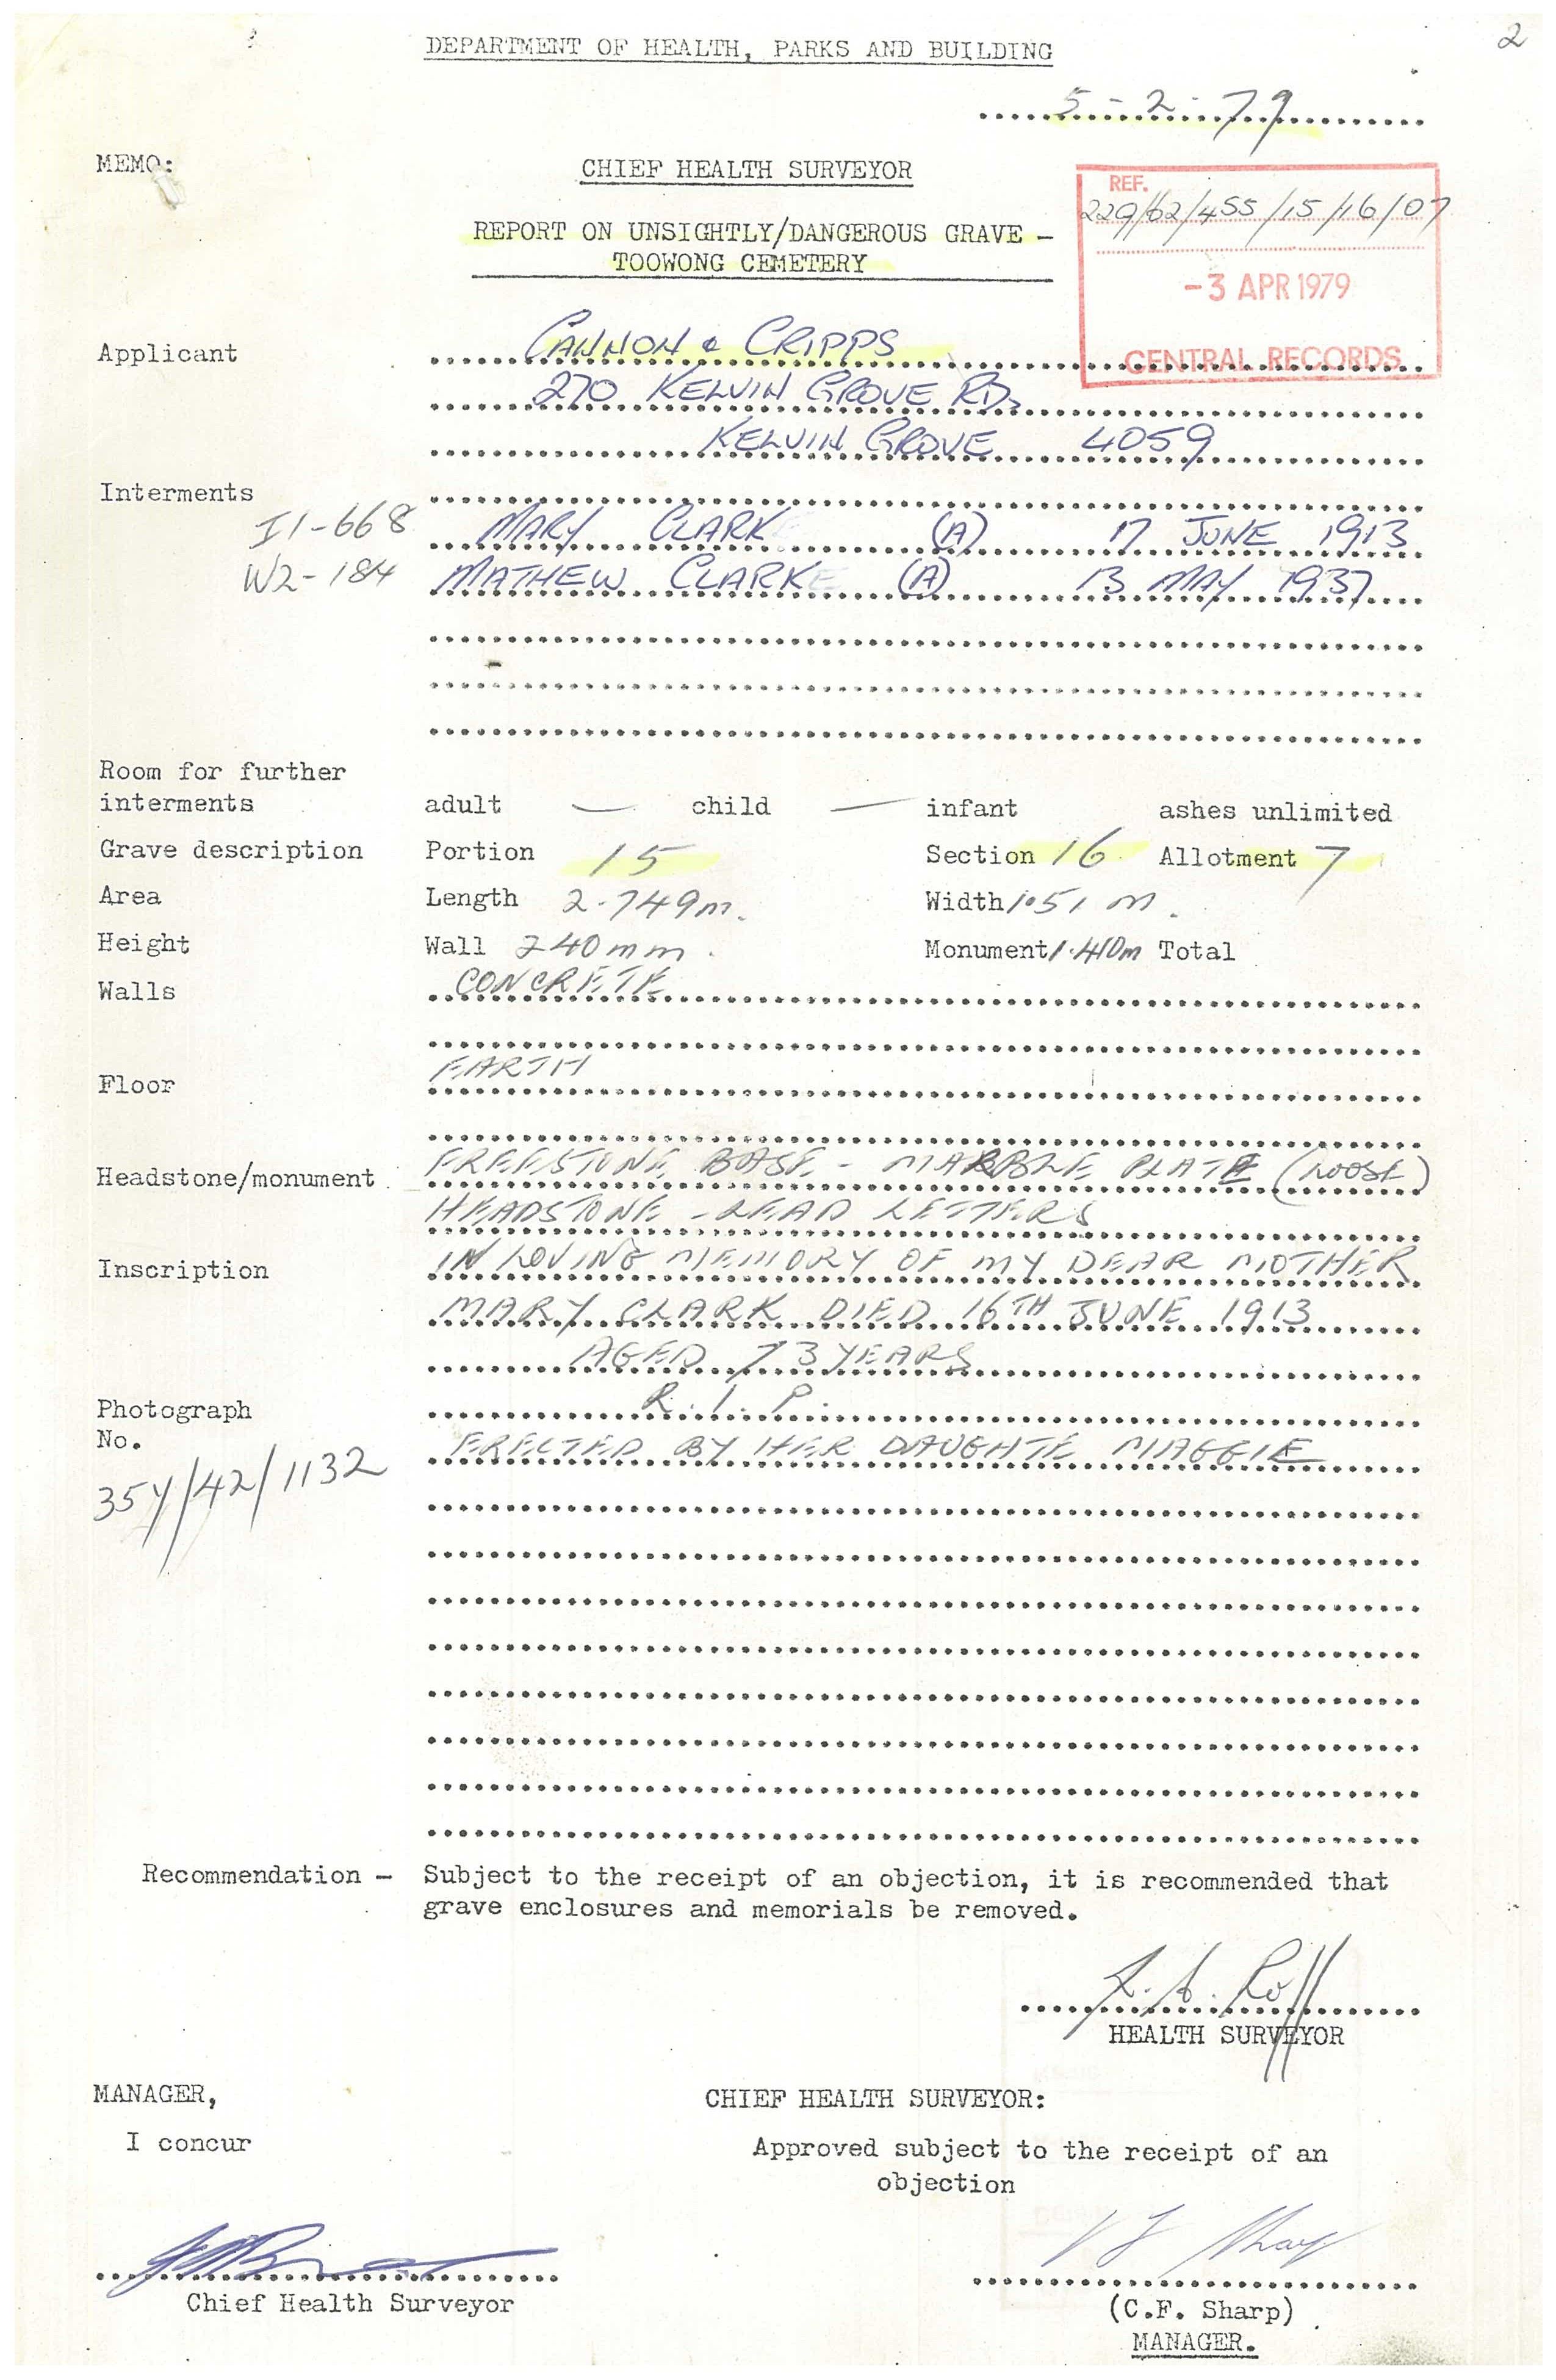 2
DEPARTMENT OF HEALTH, PARKS AND BUILDING
5-2-79
MEMO:
CHIEF HEALTH SURVEYOR
REF.
229/62/455/15/16/07
REPORT ON UNSIGHTLY/DANGEROUS GRAVE –
TOOWONG CEMETERY
-3 APR 1979
CENTRAL RECORDS
Applicant CANNON & CRIPPS
270 KELVIN GROVE RD,
KELVIN GROVE 4059
Interments
I1-668 MARY CLARK (A) 17 JUNE 1913
W2-184 MATHEW CLARK (A) 13 MAY 1937
Room for further
interments adult — child — infant ashes unlimited
Grave description Portion 15 Section 16 Allotment 7
Area Length 2.749m. Width 1.51 m.
Height Wall 240mm. Monument 1.410m Total
Walls CONCRETE
Floor EARTH
Headstone/monument FREESTONE BASE - MARBLE PLATE (LOOSE)
HEADSTONE - LEAD LETTERS
Inscription IN LOVING MEMORY OF MY DEAR MOTHER
MARY CLARK DIED 16TH JUNE 1913
AGED 73 YEARS
Photograph R.I.P.
No. ERECTED BY HER DAUGHTE MAGGIE
354/42/1132
Recommendation – Subject to the receipt of an objection, it is recommended that
grave enclosures and memorials be removed.
HEALTH SURVEYOR
MANAGER, CHIEF HEALTH SURVEYOR:
I concur Approved subject to the receipt of an
objection
Chief Health Surveyor (C.F. Sharp)
MANAGER.